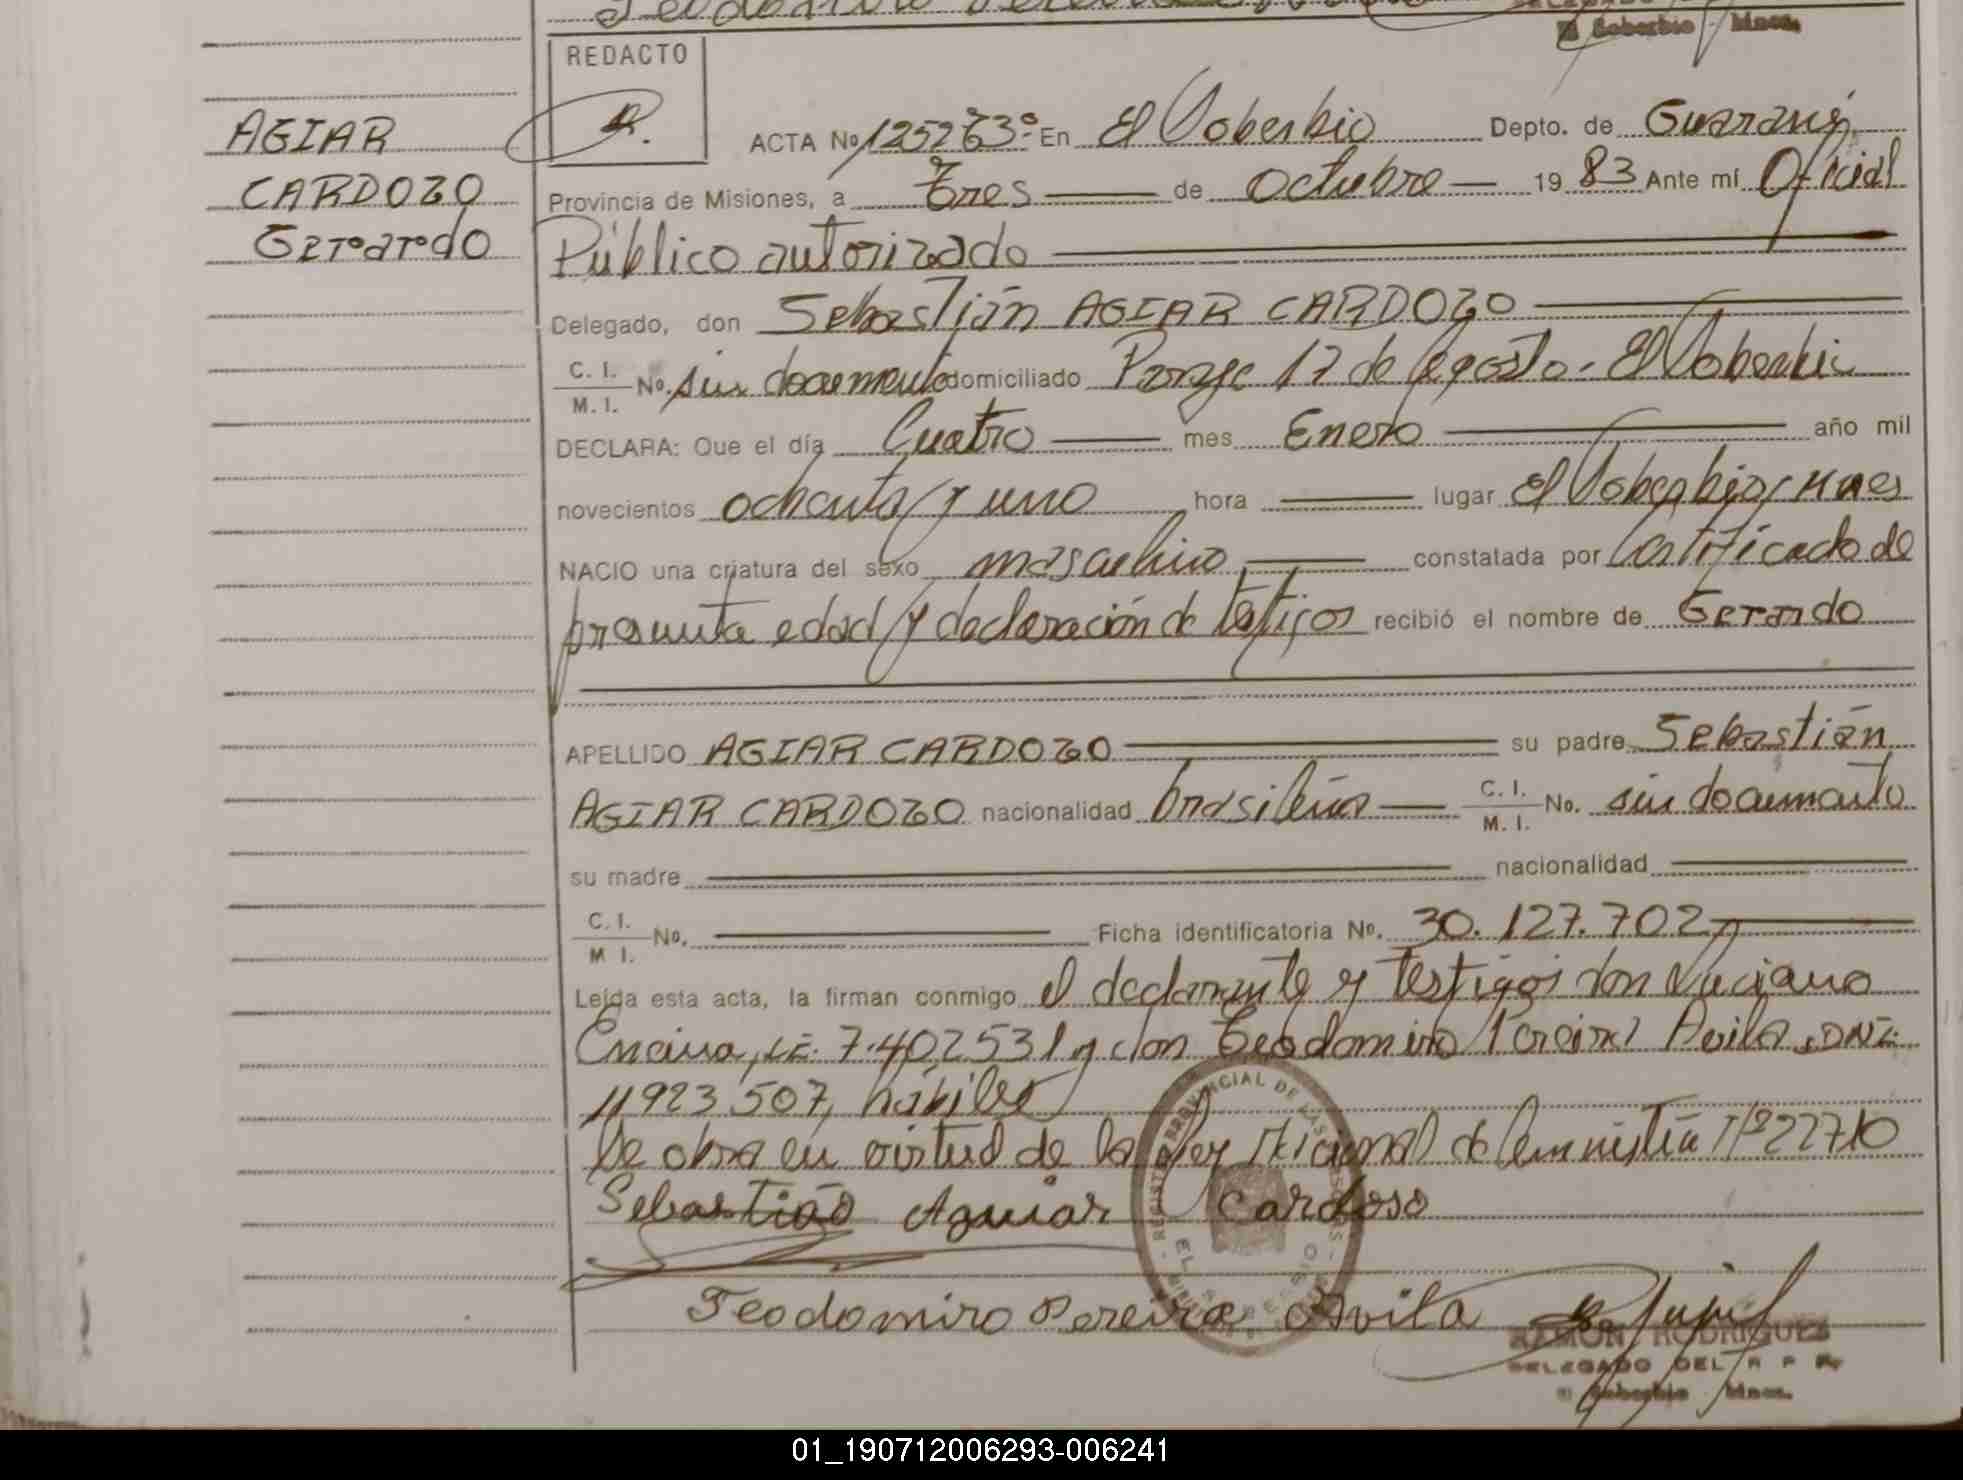 El Soberbio Mnes.
REDACTO
AGIAR
CARDOZO
Gerardo
ACTA No 125263º En El Soberbio Depto. de Guaraní
Provincia de Misiones, a Tres de Octubre 19 83 Ante mí Oficial
Público autorizado
Delegado, don Sebastián AGIAR CARDOZO
C. I.
M. I. No. sin documento domiciliado Paraje 17 de Agosto - El Soberbio
DECLARA: Que el día Cuatro mes Enero año mil
novecientos ochenta y uno hora lugar El Soberbio, Mnes
NACIO una criatura del sexo masculino constatada por Certificado de
presunta edad y declaración de testigos recibió el nombre de Gerardo
APELLIDO AGIAR CARDOZO su padre Sebastián
AGIAR CARDOZO nacionalidad brasileña C. I. M. I. No. sin documento
su madre nacionalidad
C. I. M I. No. Ficha identificatoria No. 30.127.702
Leída esta acta, la firman conmigo el declarante y testigos don Luciano
Encina, LE. 7.402531 y don Teodomiro Pereira Avila, DNI:
11923507, hábiles
Se obra en virtud de la Ley Nacional de Amnistía Nº 22710
Sebastião Aguiar Cardoso
Teodomiro Pereira Avila
RAMON RODRIGUES
DELEGADO DEL R P P
El Soberbio Mnes.
01_190712006293-006241